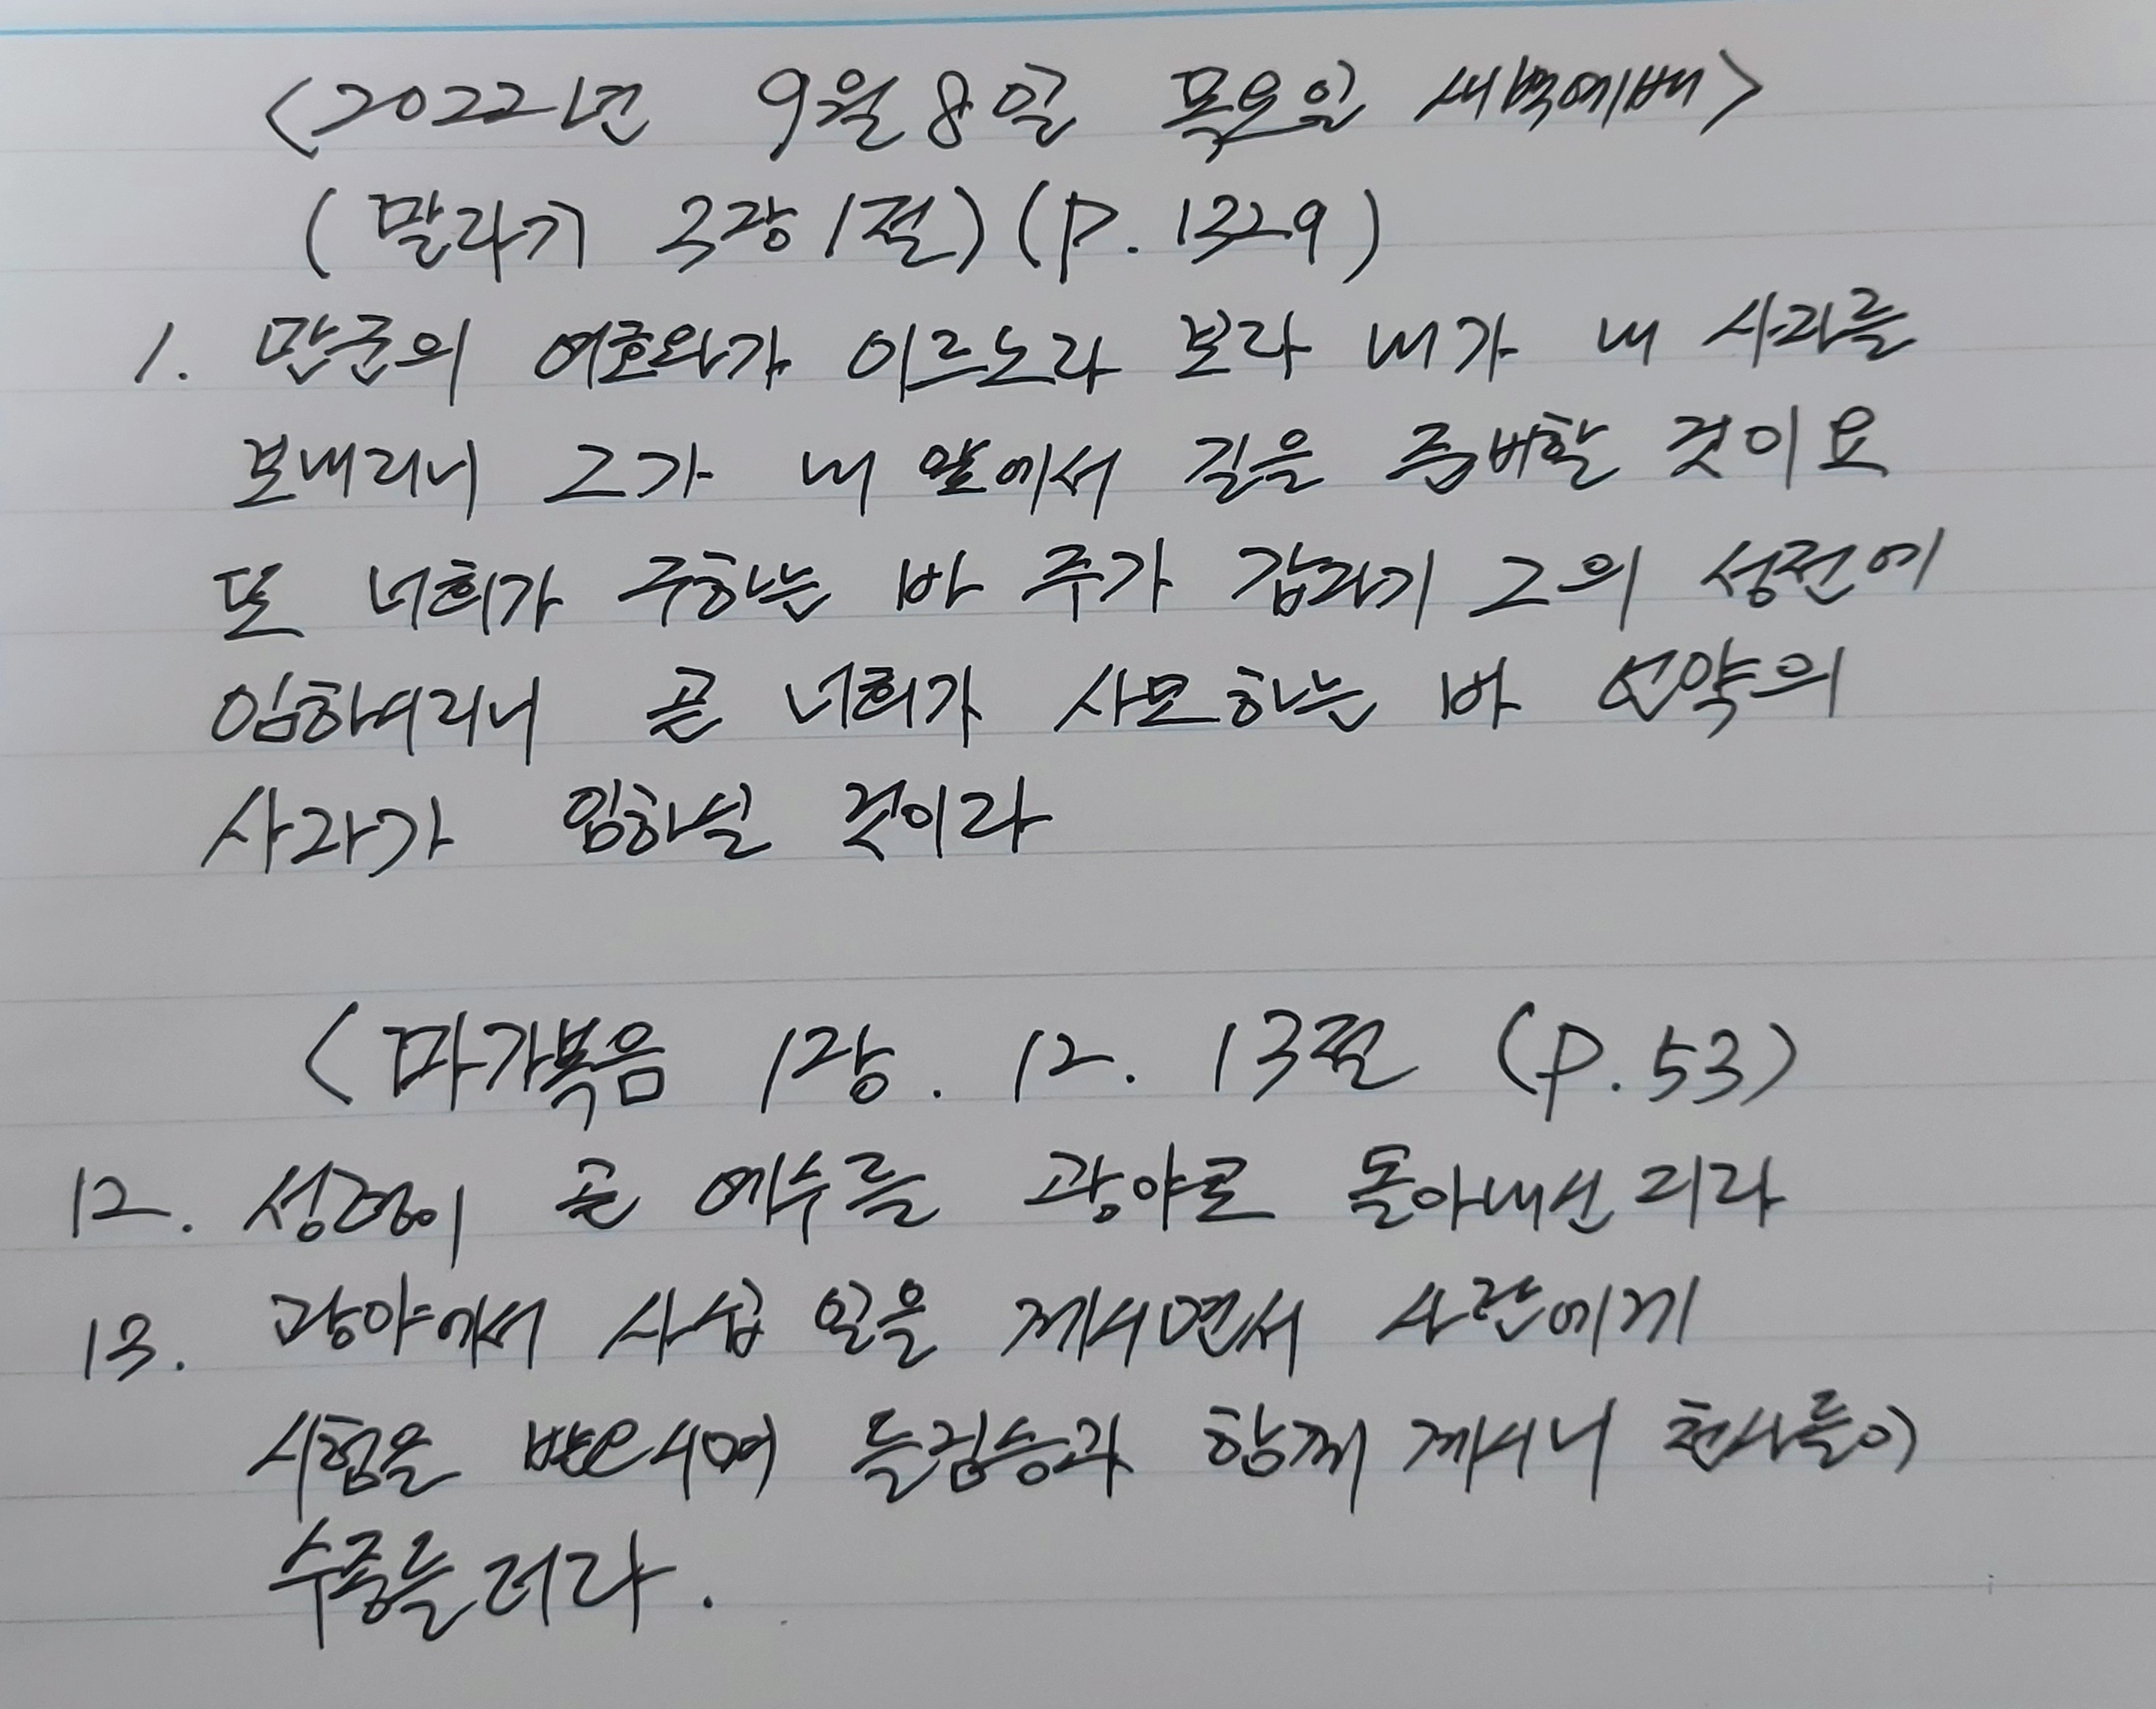 <2022년 9월 8일 목요일 새벽예배>
(말라기 3장 1절) (P. 1329)
1. 만군의 여호와가 이르노라 보라 내가 내 사자를
보내리니 그가 내 앞에서 길을 준비할 것이요
또 너희가 구하는 바 주가 갑자기 그의 성전에
임하여리니 곧 너희가 사모하는 바 언약의
사자가 임하실 것이라
<마가복음 1장. 12. 13절 (P. 53)
12. 성령이 곧 예수를 광야로 몰아내신지라
13. 광야에서 사십 일을 계시면서 사탄에게
시험을 받으시며 들짐승과 함께 계시니 천사들이
수종들더라.